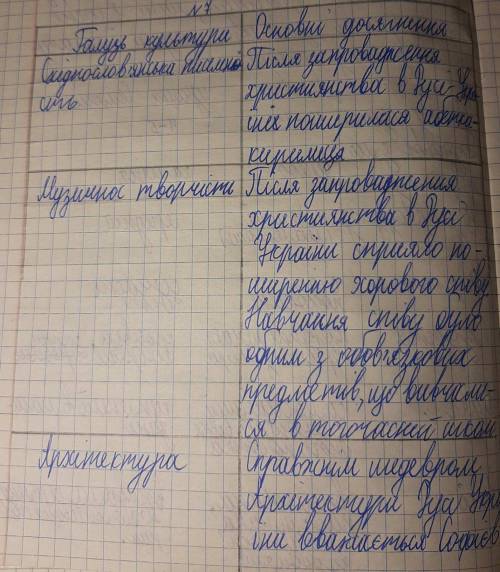 №7
Галузь культури
Східнослов'янська писемн
сть
Основні досягнення
Після запровадження
християнства в Русі-Укра
їні поширилася абетка-
кирилиця
Музичнос творчість
Після запровадження
християнства в Русі
України сприяло по-
ширенню хорового співу
Навчання співу було
одним з обов'язкових
предметів, що вивчали-
ся в тогочасній школі
Архітектура
Справжнім шедевром
Архітектури Русі Укра
їни вважається Софієв